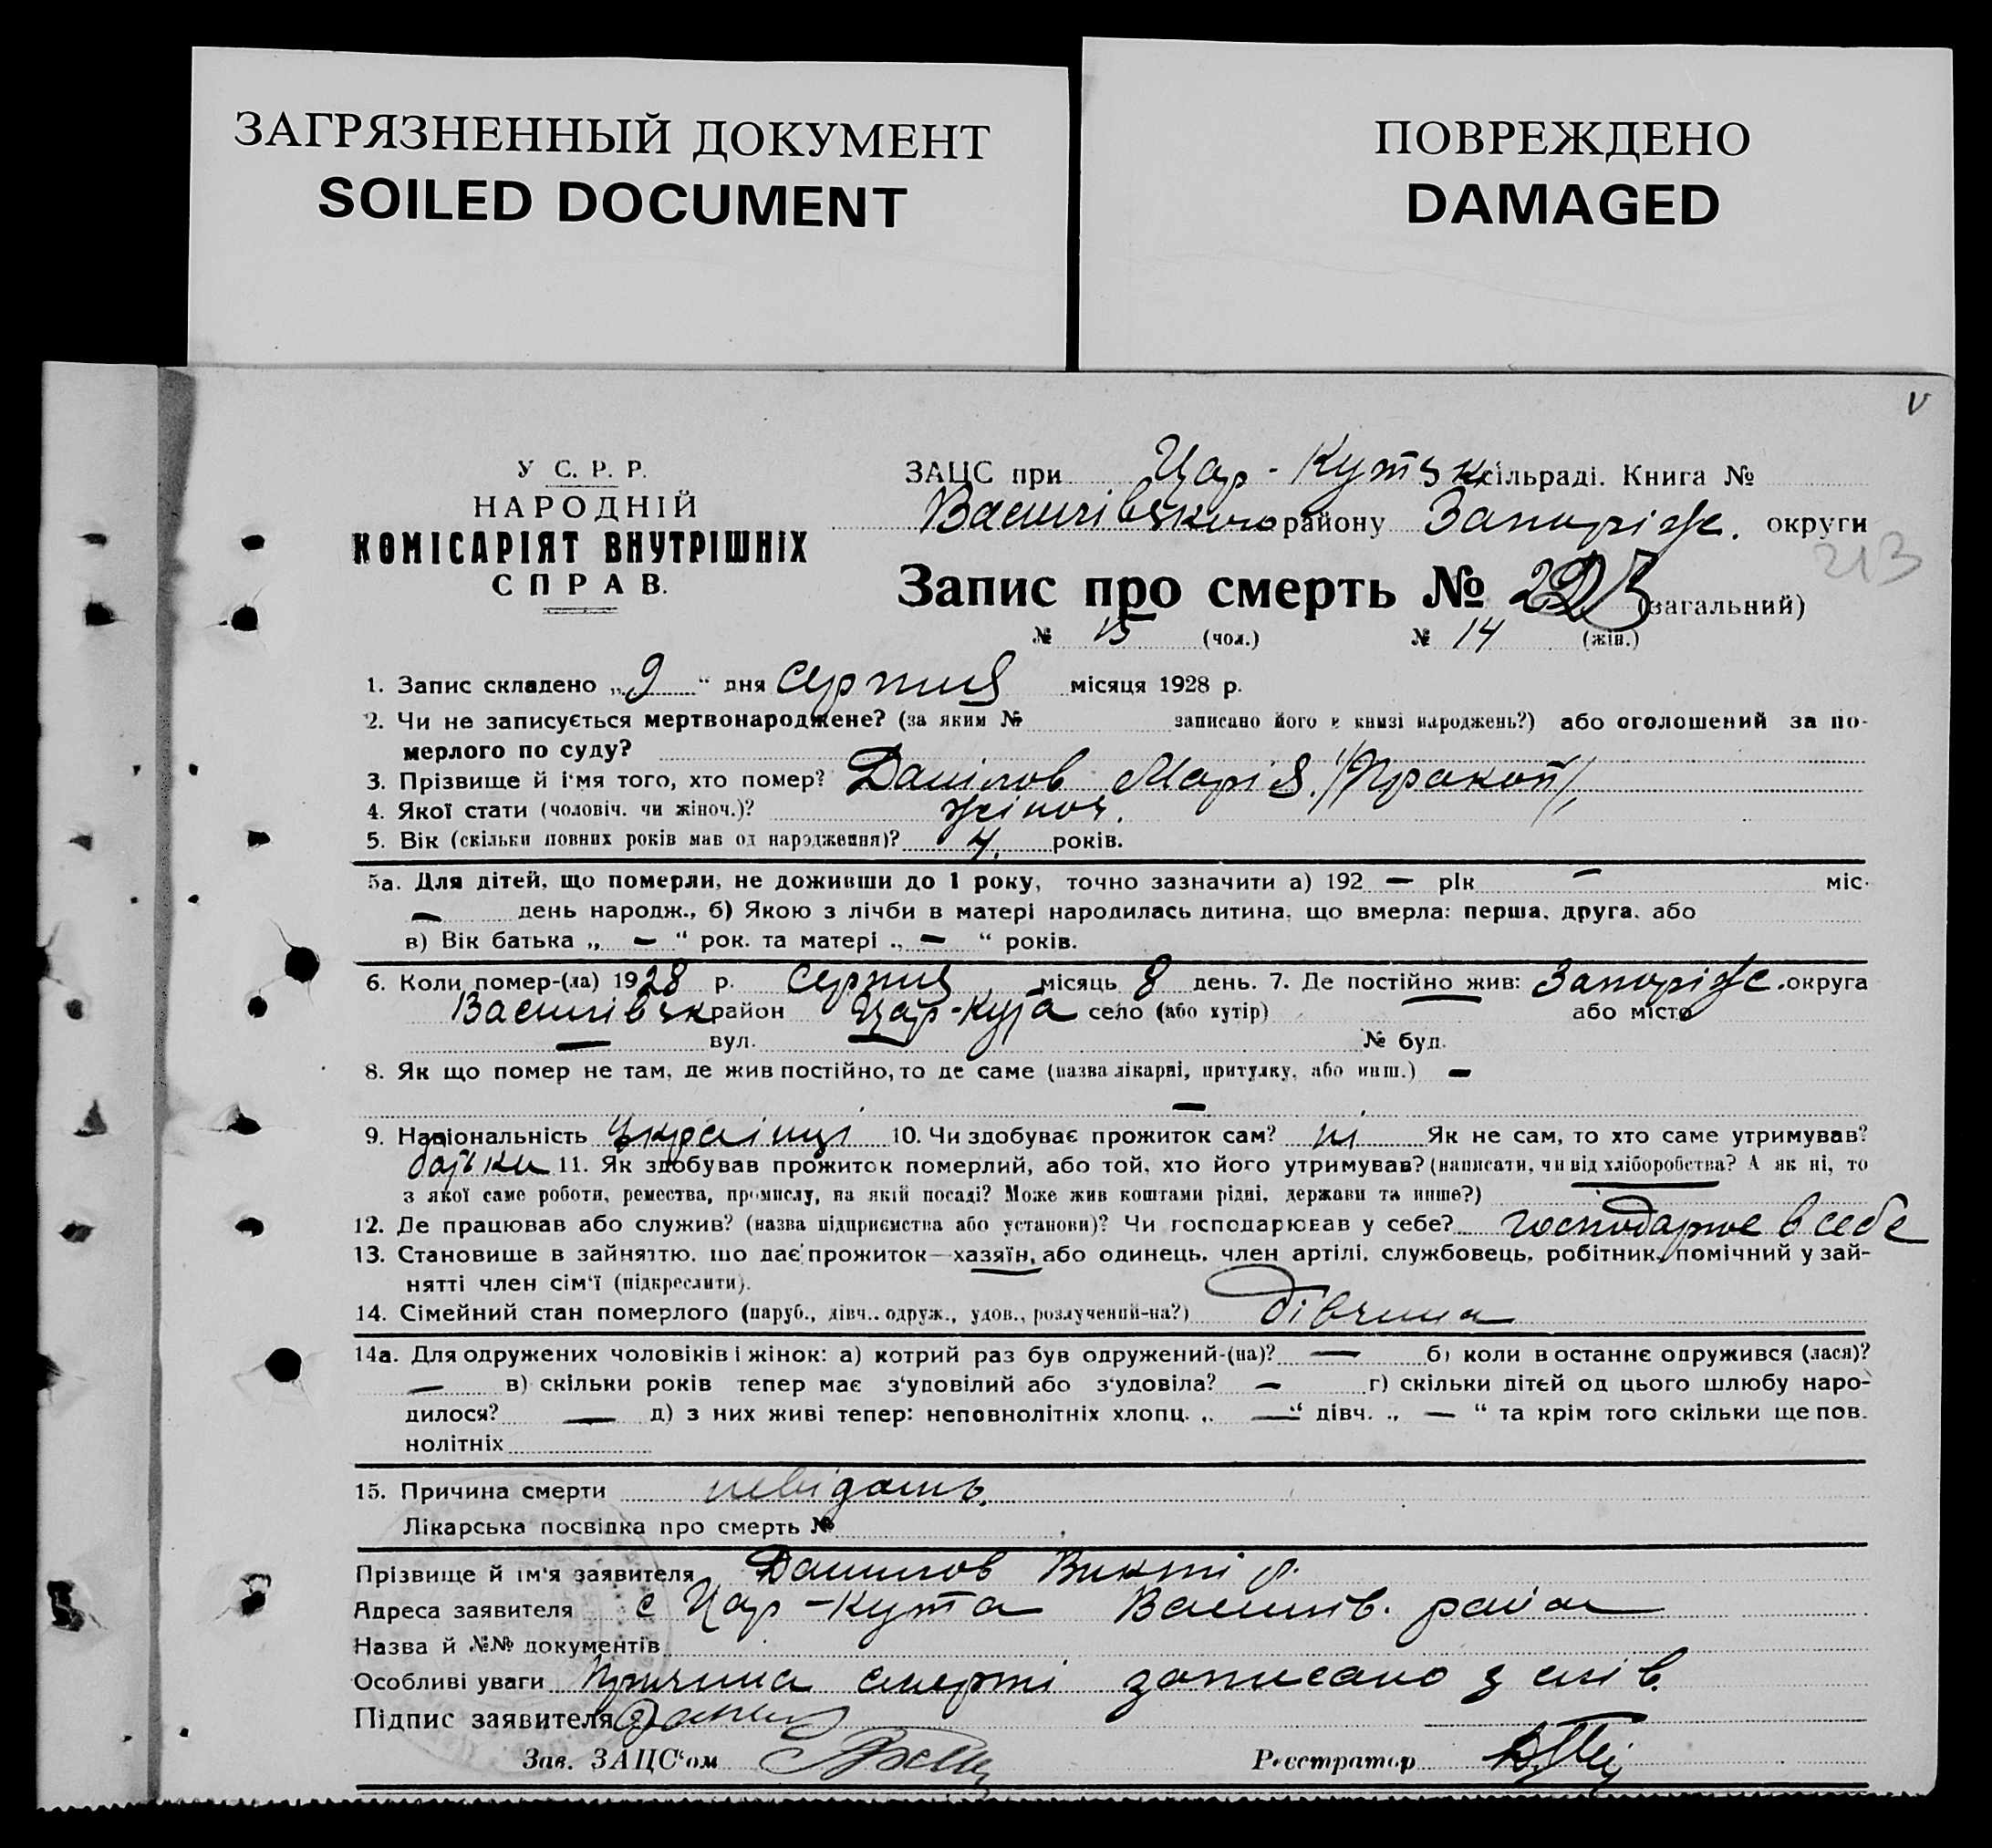 ЗАГРЯЗНЕННЫЙ ДОКУМЕНТ
SOILED DOCUMENT
ПОВРЕЖДЕНО
DAMAGED
V
У С. Р. Р.
НАРОДНІЙ
КОМІСАРІЯТ ВНУТРІШНІХ
СПРАВ.
ЗАЦС при Цар-Кутск сільраді. Книга №
Василівського району Запоріж. округи
213
Запис про смерть № (загальний)
№ 15 (чол.) № 14 (жін.)
1. Запис складено „9“ дня серпня місяця 1928 р.
2. Чи не записується мертвонароджене? (за яким № записано його в книзі народжень?) або оголошений за по-
мерлого по суду?
3. Прізвище й ім'я того, хто помер? Данілов Марія /Пракоп/
4. Якої стати (чоловіч. чи жіноч.)? жіноч.
5. Вік (скільки повних років мав од народження)? 4. років.
5а. Для дітей, що померли, не доживши до 1 року, точно зазначити а) 192 — рік — міс.
— день народж., б) Якою з лічби в матері народилась дитина, що вмерла: перша, друга, або
в) Вік батька „ — “ рок. та матері „ — “ років.
6. Коли помер-(ла) 1928 р. серпня місяць 8 день. 7. Де постійно жив: Запоріж. округа
Василівськ район Цар-Кута село (або хутір) або місто
— вул. № буд.
8. Як що помер не там, де жив постійно, то де саме (назва лікарні, притулку, або инш.) —
—
9. Національність Українці 10. Чи здобуває прожиток сам? ні Як не сам, то хто саме утримував?
батьки 11. Як здобував прожиток померлий, або той, хто його утримував? (написати, чи від хліборобства? А як ні, то
з якої саме роботи, ремества, промислу, на якій посаді? Може жив коштами рідні, держави та инше?)
12. Де працював або служив? (назва підприємства або установи)? Чи господарював у себе? господарює в себе
13. Становище в зайняттю, що дає прожиток—хазяїн, або одинець, член артілі, службовець, робітник, помічний у зай-
нятті член сім'ї (підкреслити).
14. Сімейний стан померлого (паруб., дівч.. одруж., удов., розлучений-на?) дівчина
14а. Для одружених чоловіків і жінок: а) котрий раз був одружений-(на)? — б) коли в останнє одружився (лася)?
— в) скільки років тепер має з'уповілий або з'удовіла? — г) скільки дітей од цього шлюбу наро-
дилося? — д) з них живі тепер: неповнолітніх хлопц. „ —“ дівч. „ — “ та крім того скільки ще пов.
нолітніх
15. Причина смерти невідомь.
Лікарська посвідка про смерть №
Прізвище й ім'я заявителя Данилов Вікті р.
Адреса заявителя с Цар-Кута Василів. район
Назва й №№ документів
Особливі уваги Причина смерті записано з слів.
Підпис заявителя
Зав. ЗАЦС'ом Реєстратор